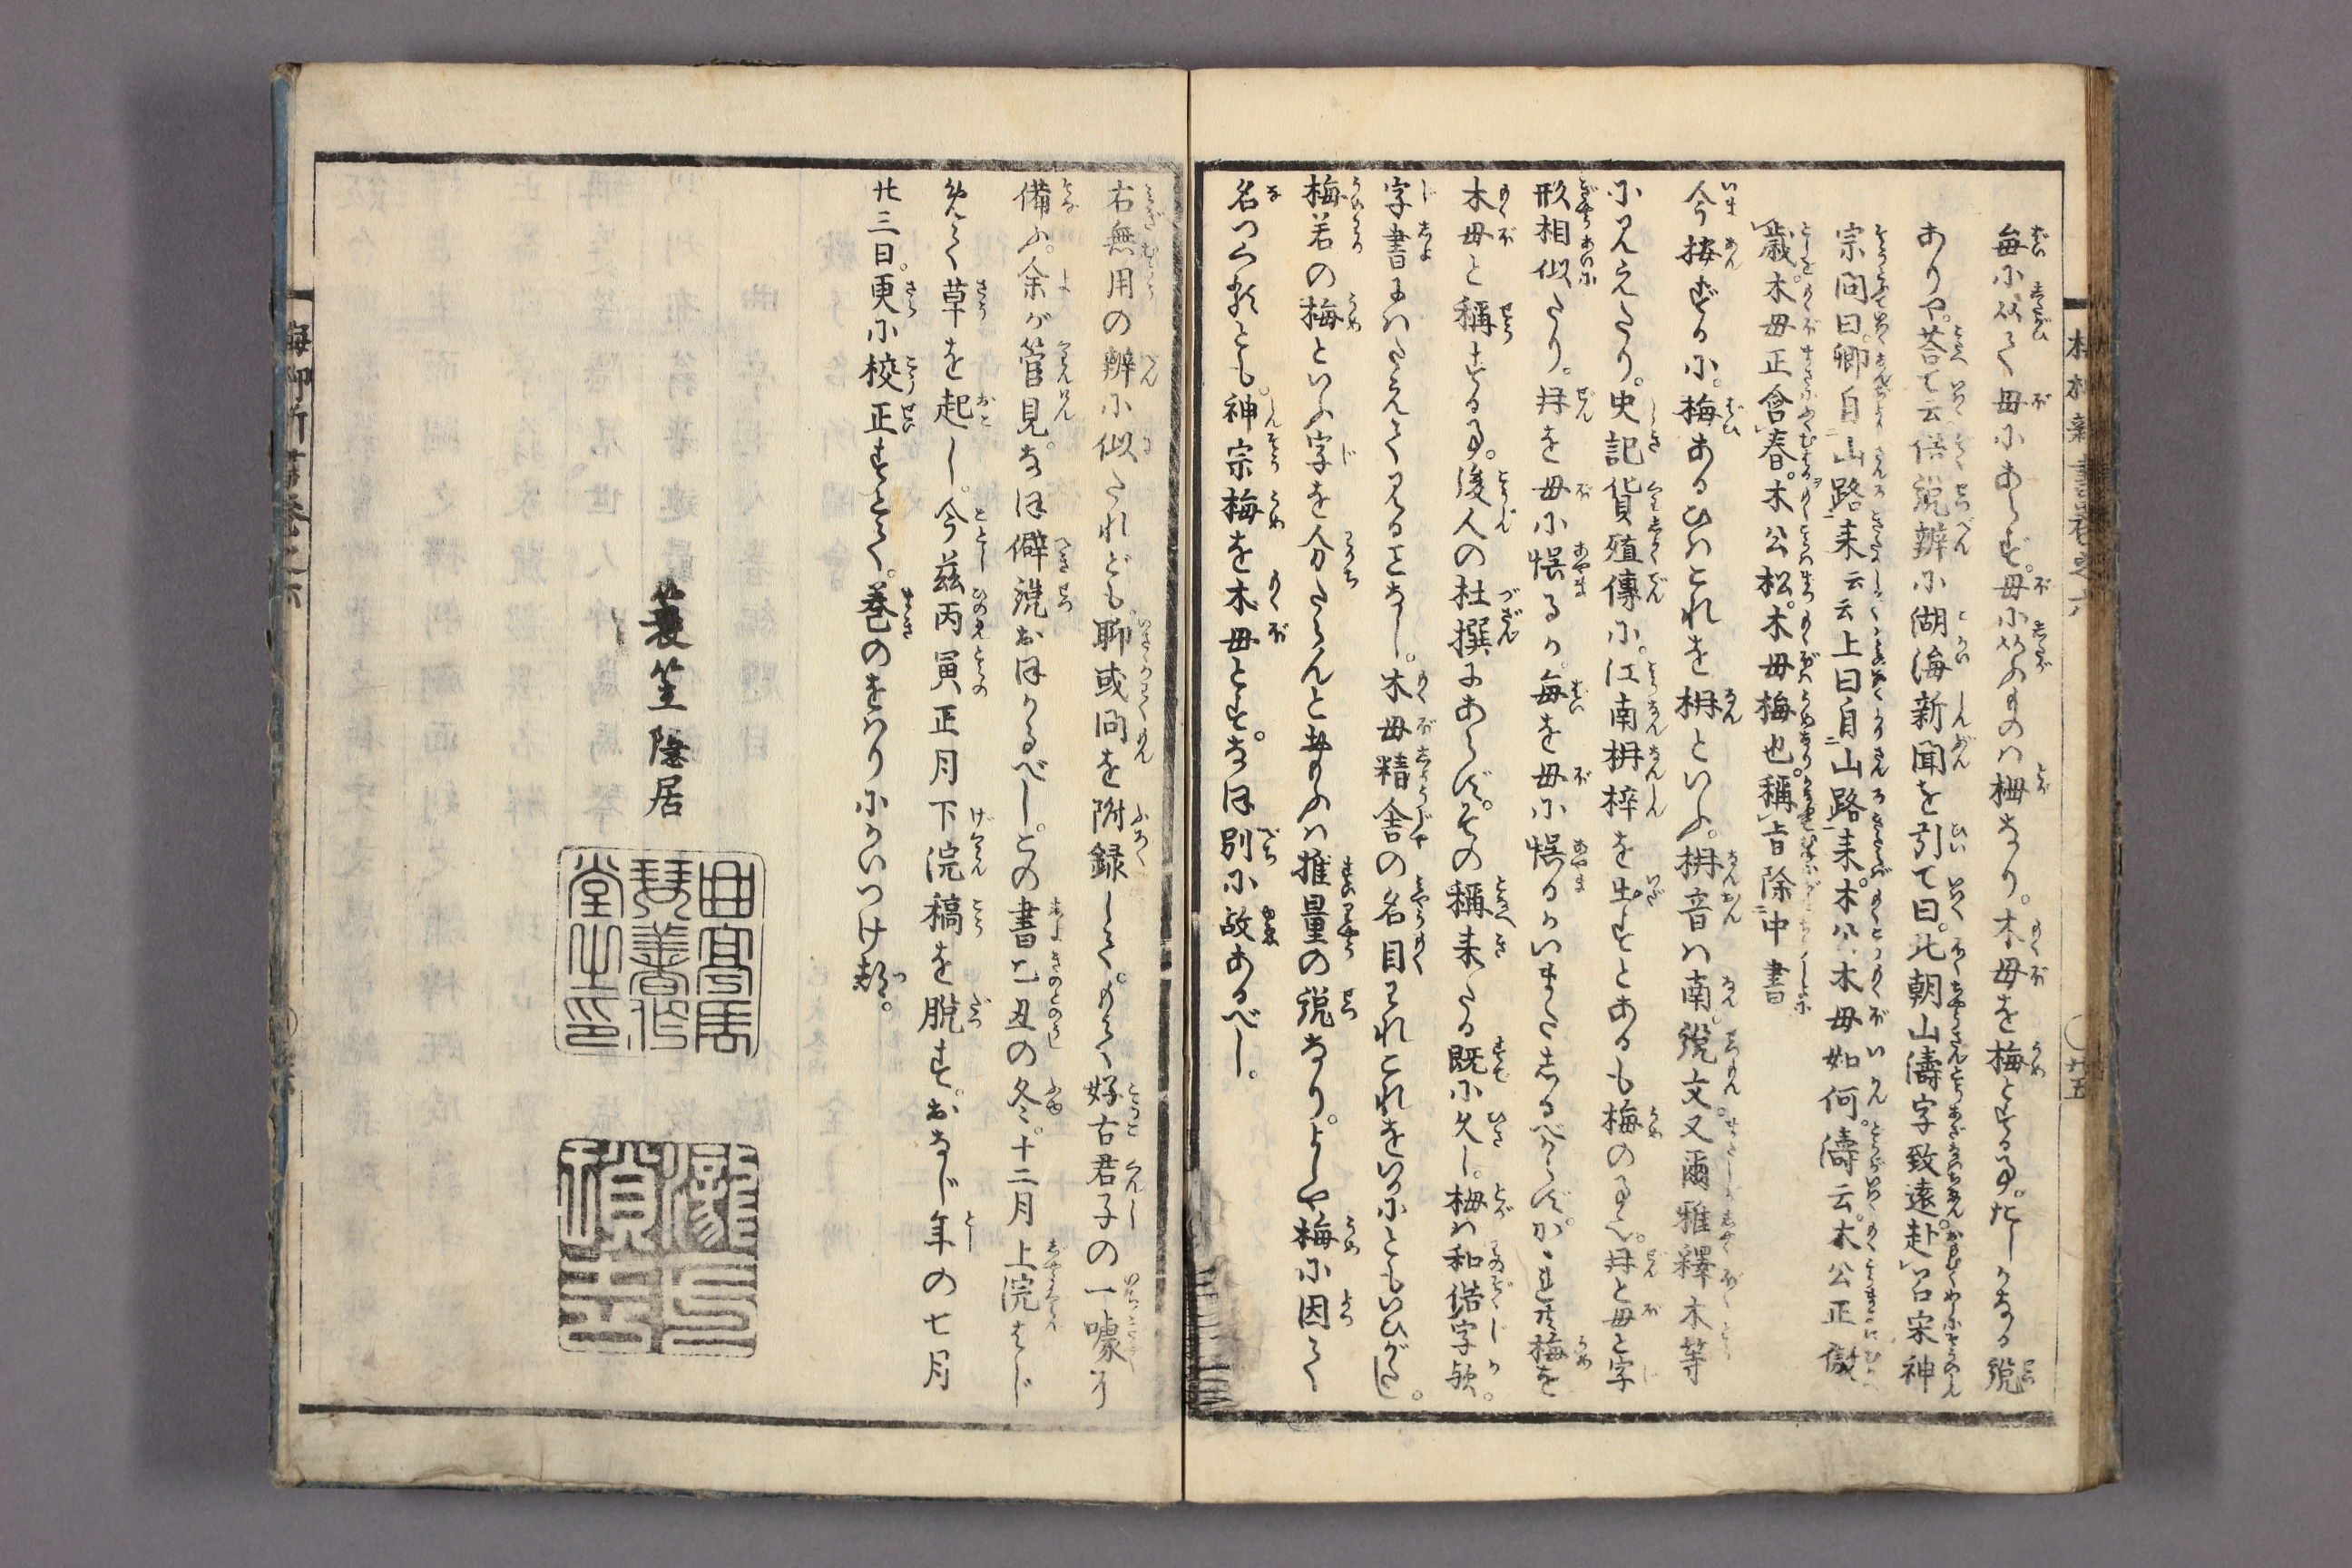 毎に从て母にあらず。母に从ふものは栂なり。木母を梅とする事。たしかなる説
ありや。荅て云俗説辨に湖海新聞を引て曰。北朝山濤字致遠。赴召宋神
宗問曰。卿自山路来云云上曰自山路来。木公木母如何。濤云。木公正傲
歳。木母正含春。木公松。木母梅也。稱旨除中書
今按ずるに。梅あるひはこれを枏といふ。枏音は南。説文。又爾雅釋木等
に見えたり。史記貨殖傳に。江南枏梓を出すとあるも梅の事也。冄と母と字
形相似たり。冄を母に悞るか。毎を母に悞るかいまだしるべからず。かゝれば梅を
木母と稱する事。後人の杜撰にあらず。その稱来たる既に久し。栂は和俗字欤。
字書にはたえて見ることなし。木母精舎の名目それこれをいかにともいひがたし。
梅若の梅といふ字を分たらんと思ふは推量の説なり。よしや梅に因て
名つくるとも。神宗梅を木母とす。なほ別に故あるべし。
梅柳新書巻之六
○廿五
右無用の辨に似たれども。聊或問を附録して。もて好古君子の一噱に
備ふ。余が管見。なほ僻説おほかるべし。この書乙丑の冬。十二月上浣はじ
めて草を起し。今茲丙寅正月下浣稿を脱す。おなじ年の七月
廿三日。更に校正すとて。巻のをはりにかいつけ侍る。
簑笠隠居
曲亭馬
琴著作
堂之印
梅柳新書巻之六